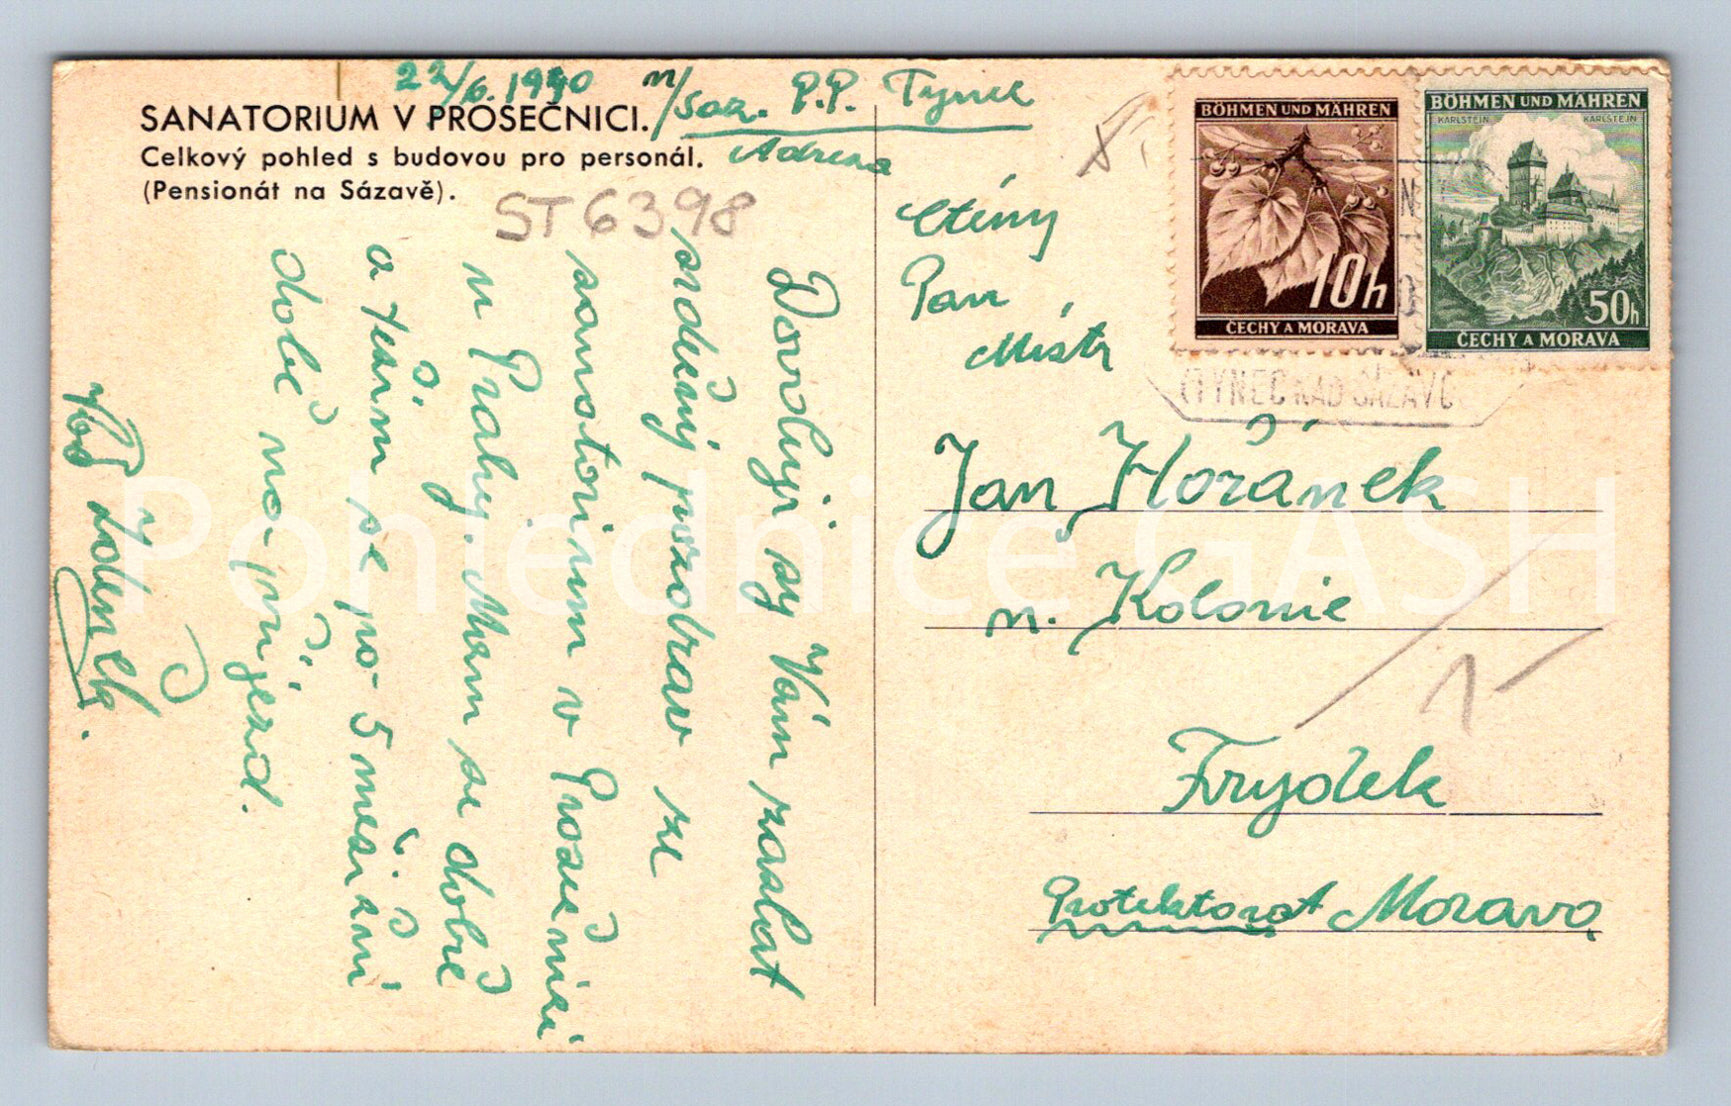 22/6. 1940
n/Sáz. P.P. Týnec
Adresa
SANATORIUM V PROSEČNICI.
Celkový pohled s budovou pro personál.
(Pensionát na Sázavě).
ST 6398
Dovoluji sy Vám zaslat
srdečný pozdrav ze
sanatorium v Prosečnici
u Prahy. Mám se dobře
a těším se po 5 měsíční
době na příjezd.
Váš
Ctěný
Pan
Mistr
Jan Hořánek
n. Kolonie
Frydek
Protektorat Morava
BÖHMEN UND MÄHREN
10h
ČECHY A MORAVA
BÖHMEN UND MÄHREN
KARLSTEIN KARLŠTEJN
50h
ČECHY A MORAVA
TÝNEC NAD SÁZAVO
1-
Pohlednice GASH